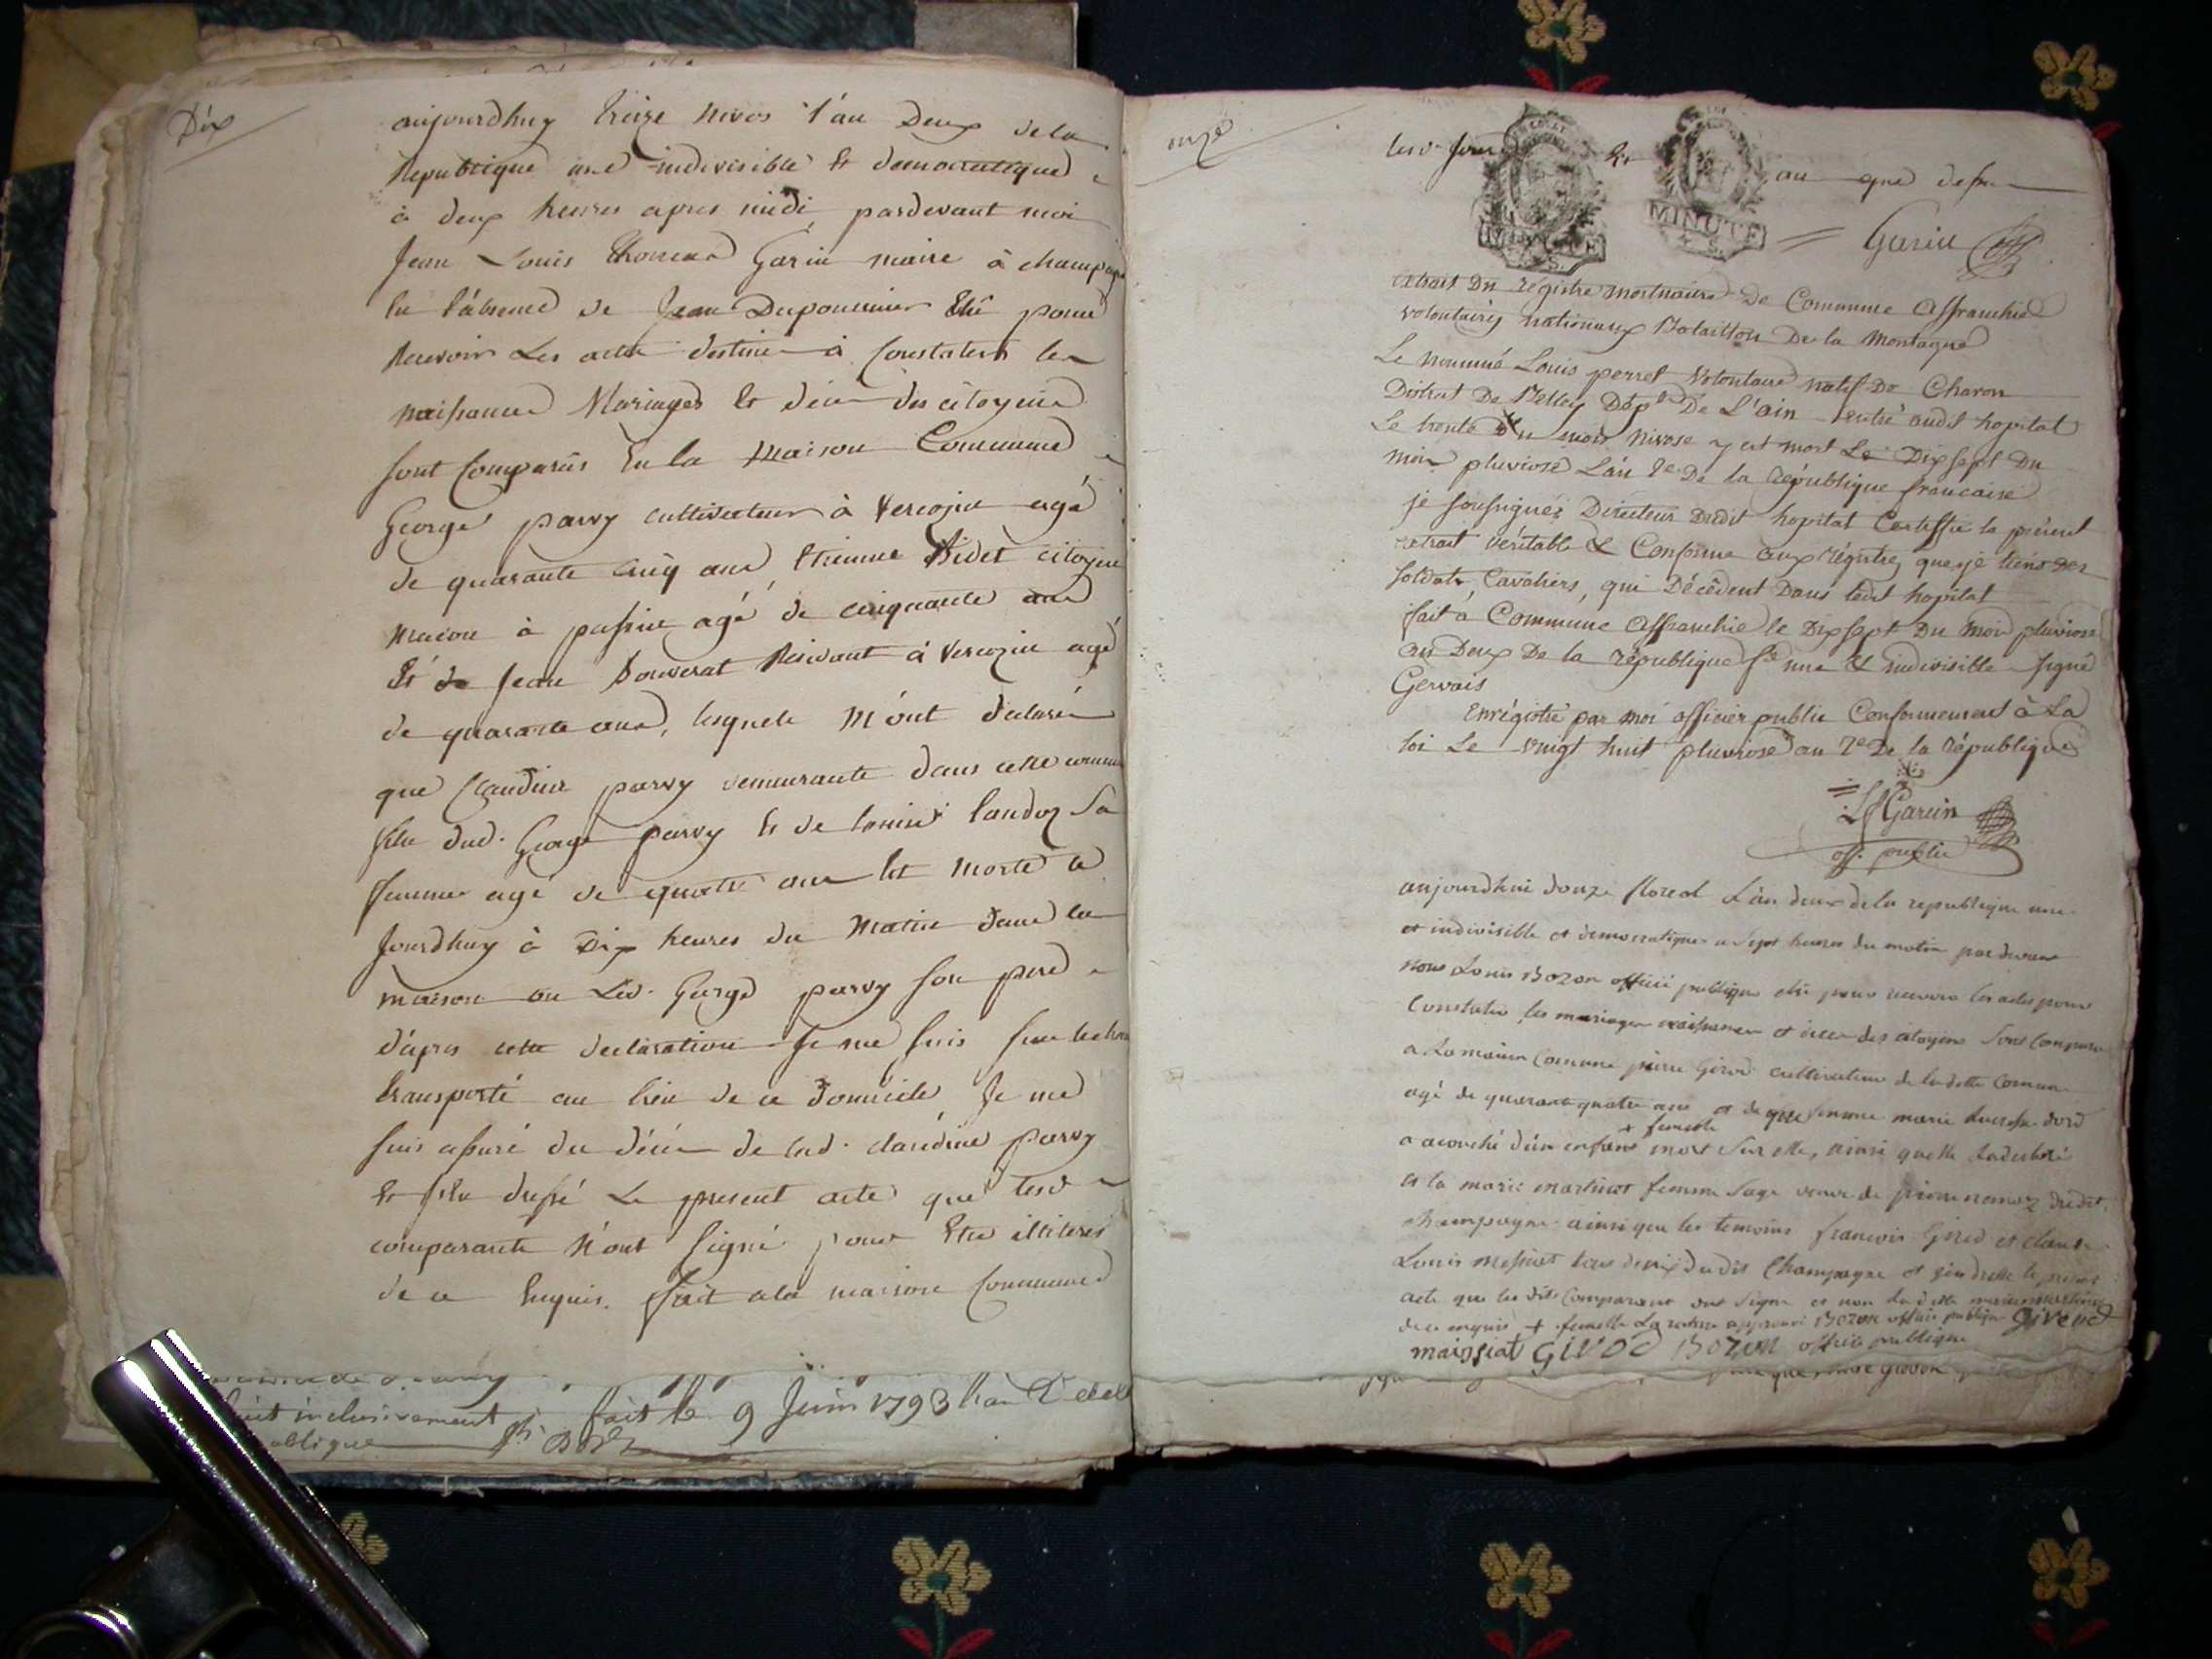 Dix
aujourdhuy treize nivos l'an Deux de la
Republique une indivisible et democratique
à deux heures apres midi pardevant moi
Jean Louis Garin maire à champagne
En l'absence de Jean Dupommier Elu pour
Recevoir Les actes destinés à Constater les
naissances Mariages et décès des citoyens
sont Comparus En la Maison Commune
George parvy cultivateur à Vercozin agé
de quarante cinq ans Etienne Bidet citoyen
macon à passin agé de cinquante ans
Et de Jean Bouverat Residant à Vercozin agé
de quarante ans, lesquels M'ont declaré
que Claudine parvy demeurante dans cette commune
fille dud. George parvy et de Louise landoz Sa
femme agé de quatre ans Est Morte ce
Jourdhuy à Dix heures du Matin dans la
maison du Led. George parvy son pere
d'apres cette declaration Je me suis sur le cham
transporté au lieu de ce domicile Je me
suis assuré du décés de lad. claudine parvy
Et J'en dressé Le present acte que lesd
comparants N'ont Signé pour Etre illiterés
de ce Enquis. fait a la maison Commune
huit inclusivement fait le 9 Juin 1793 l'an 2e de la
publique
onze
lesd. Jour et an que dessus
MINUTE
MINUTE
Garin
extrait Du registre mortuaire De Commune Affranchie
volontaires nationaux Bataillon De la Montagne
Le nommé Louis perret Volontaire natif De Charon
District De Belley Dépt De L'ain entré audit hopital
Le trente Du mois Nivose y est mort Le Dix sept Du
mois pluviose L'an 2e De la République francaise
je soussignéz Directeur Dudit hopital Certiffie le présent
extrait Véritable & Conforme aux régistres que je tiens des
soldats, Cavaliers, qui Décèdent Dans ledit hopital
fait à Commune Affranchie le Dix Sept Du Mois pluviose
an Deux De la République fse une & indivisible signé
Gervais
Enrégistré par moi officier public Conformement à La
loi Le vingt huit pluviose an 2e De la République
Garin
off. public
aujourdhui douze floreal L'an deux de la republique une
et indivisible et democratique a Sept heures du matin par devant
nous Louis Bozon officié publique élu pour recevoir les actes pour
Constater les mariages naissances et décès des citoyens Sont Comparu
a La maison Comune pierre Girod cultivateur de laditte Comune
agé de quarante quatre ans et de que femme marie
+ femelle
a acouché d'un enfant mort Sur elle, ainsi quelle la declaré
et la marie martinet femme Sage veuve de pierre dudit
champagne ainsi que les temoins francois Girod et Claude
Louis Messiat tous deux dudit Champagne et j'ai dressé le present
acte que les dits Comparant ont Signé et non la ditte marie martinet
de ce enquis + femelle La rature approuvé Bozon officié publique Givend
maissiat GIVOD BOZON officié publique